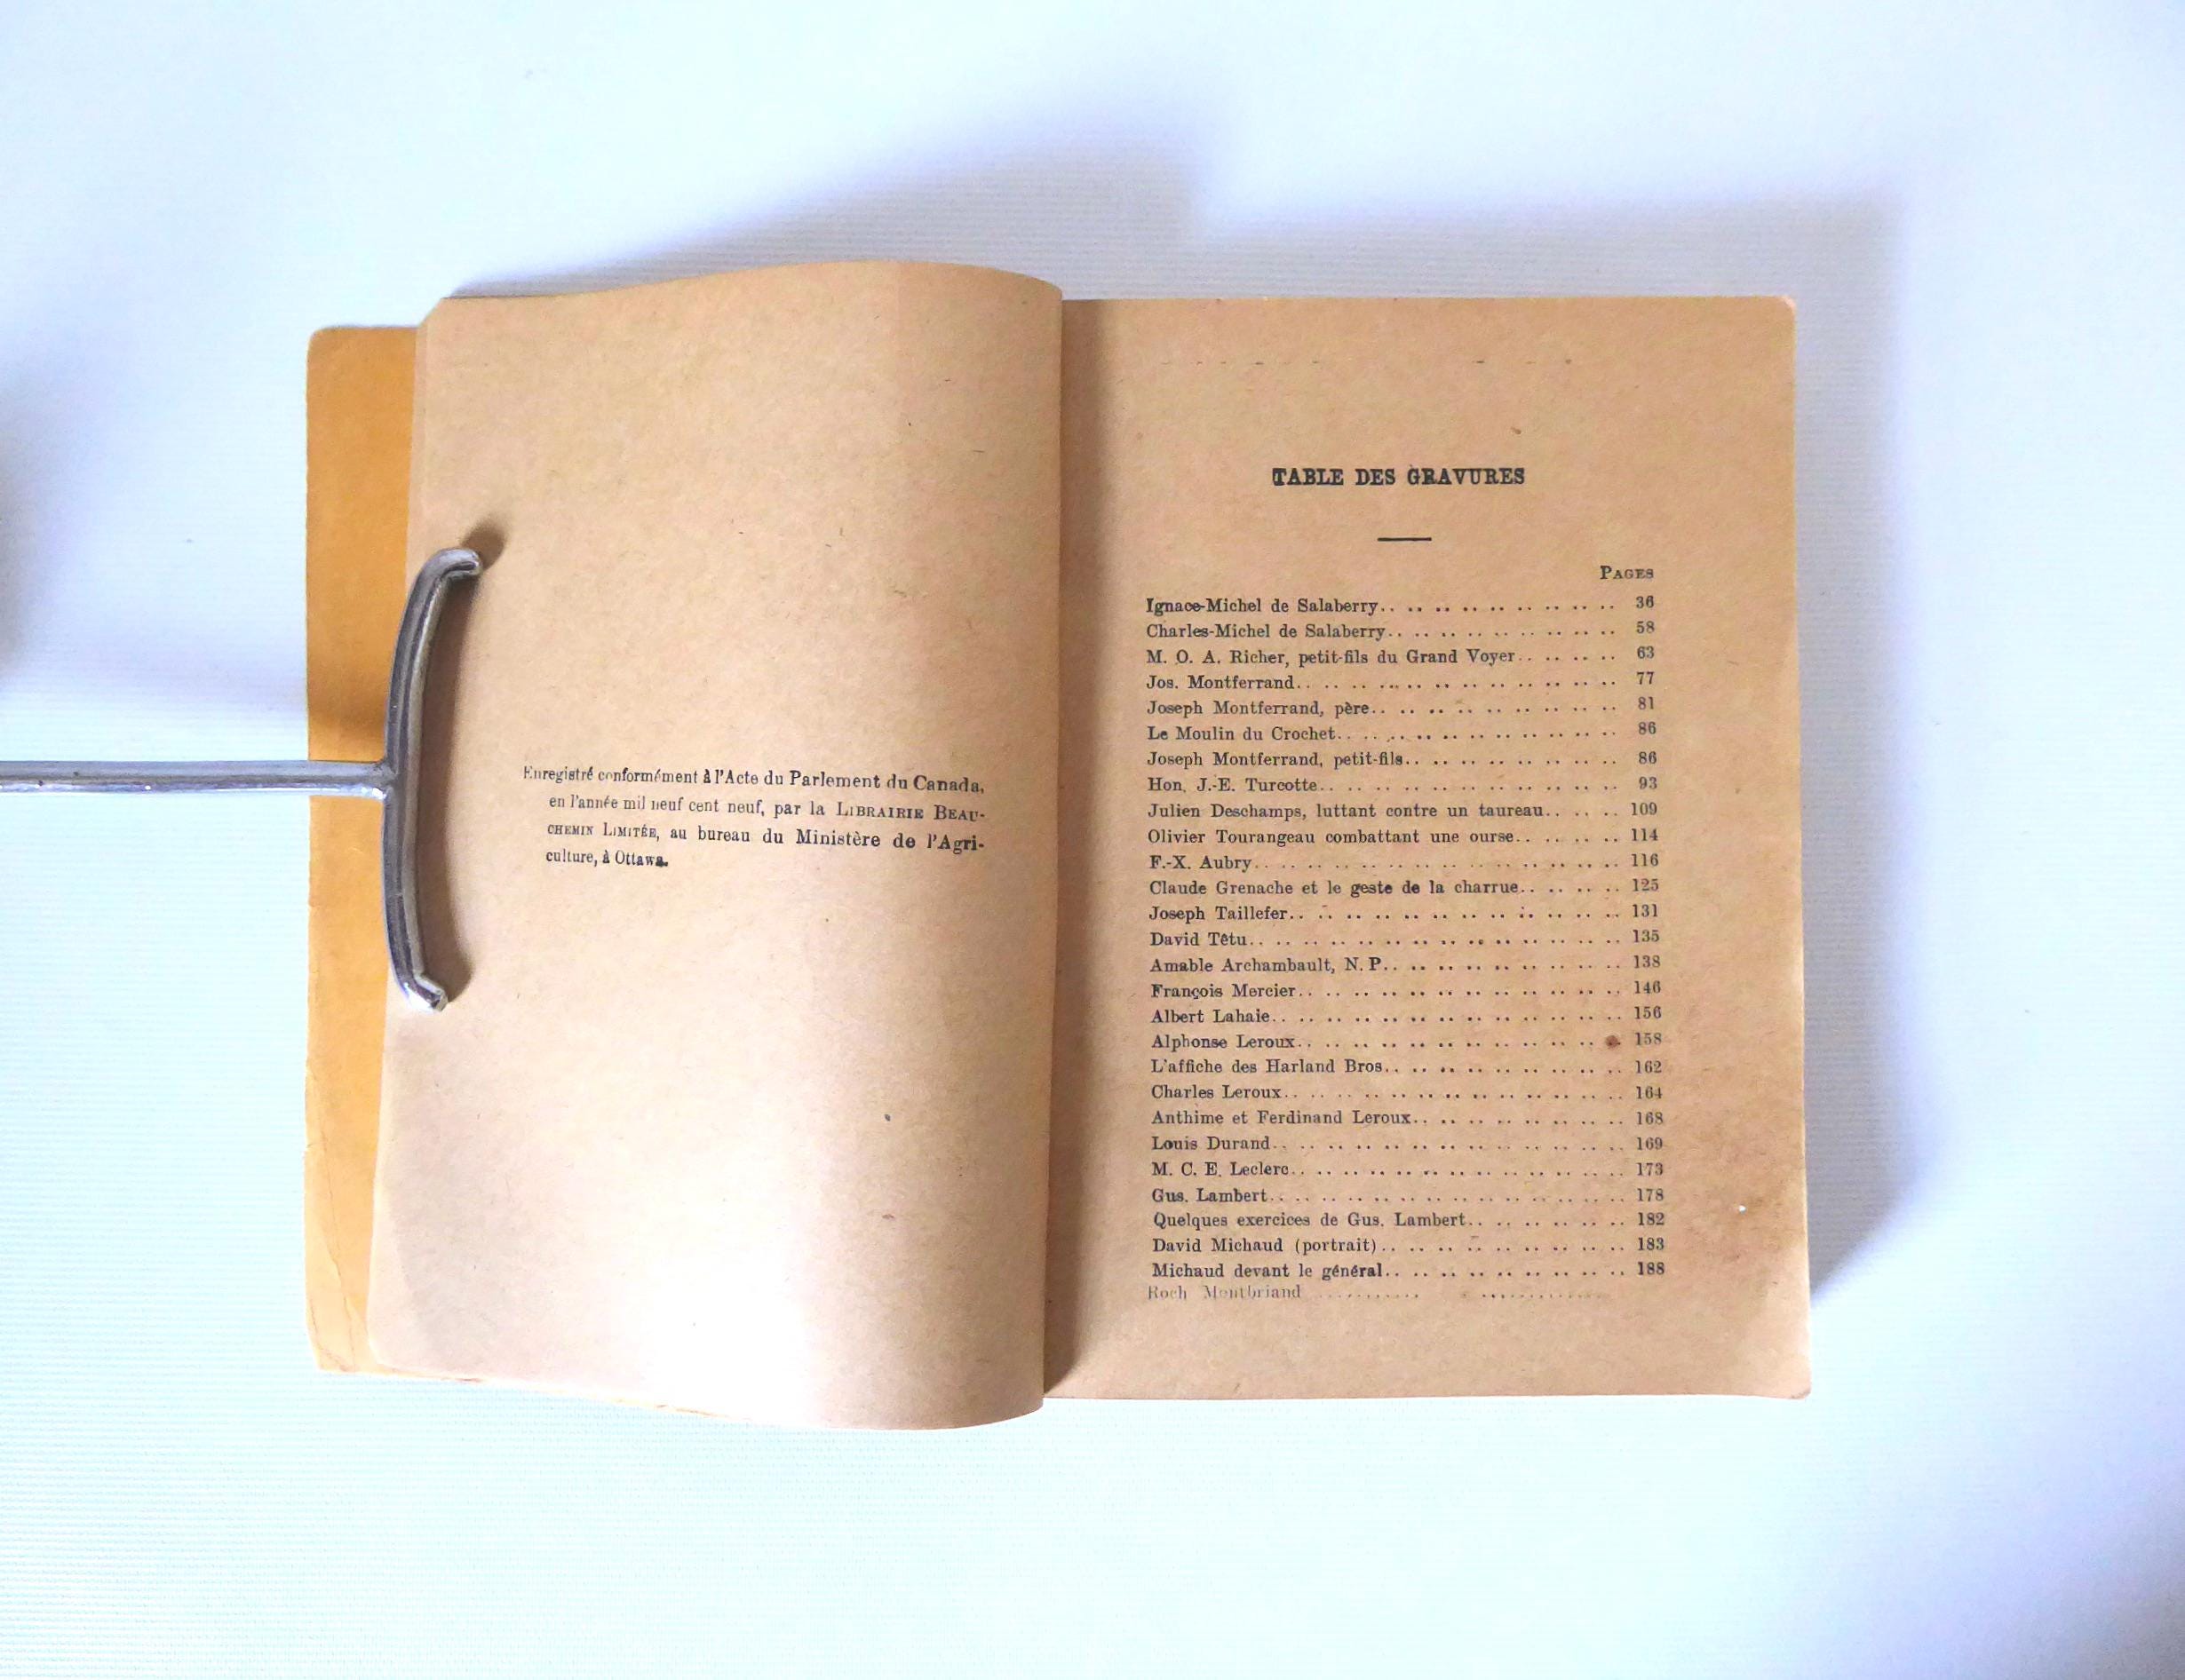 Enregistré conformément à l'Acte du Parlement du Canada,
en l'année mil neuf cent neuf, par la LIBRAIRIE BEAU-
CHEMIN LIMITÉE, au bureau du Ministère de l'Agri-
culture, à Ottawa.
TABLE DES GRAVURES
PAGES
Ignace-Michel de Salaberry.. .. .. .. .. .. .. .. .. 36
Charles-Michel de Salaberry.. .. .. .. .. .. .. .. .. 58
M. O. A. Richer, petit-fils du Grand Voyer.. .. .. .. 63
Jos. Montferrand.. .. .. .. .. .. .. .. .. .. .. .. 77
Joseph Montferrand, père.. .. .. .. .. .. .. .. .. .. 81
Le Moulin du Crochet.. .. .. .. .. .. .. .. .. .. .. 86
Joseph Montferrand, petit-fils.. .. .. .. .. .. .. .. .. 86
Hon. J.-E. Turcotte.. .. .. .. .. .. .. .. .. .. .. .. 93
Julien Deschamps, luttant contre un taureau.. .. .. .. 109
Olivier Tourangeau combattant une ourse.. .. .. .. .. 114
F.-X. Aubry.. .. .. .. .. .. .. .. .. .. .. .. .. .. 116
Claude Grenache et le geste de la charrue.. .. .. .. .. 125
Joseph Taillefer.. .. .. .. .. .. .. .. .. .. .. .. .. 131
David Têtu.. .. .. .. .. .. .. .. .. .. .. .. .. .. 135
Amable Archambault, N. P.. .. .. .. .. .. .. .. .. .. 138
François Mercier.. .. .. .. .. .. .. .. .. .. .. .. .. 146
Albert Lahaie.. .. .. .. .. .. .. .. .. .. .. .. .. .. 156
Alphonse Leroux.. .. .. .. .. .. .. .. .. .. .. .. .. 158
L'affiche des Harland Bros.. .. .. .. .. .. .. .. .. .. 162
Charles Leroux.. .. .. .. .. .. .. .. .. .. .. .. .. .. 164
Anthime et Ferdinand Leroux.. .. .. .. .. .. .. .. .. 168
Louis Durand.. .. .. .. .. .. .. .. .. .. .. .. .. .. 169
M. C. E. Leclerc.. .. .. .. .. .. .. .. .. .. .. .. .. 173
Gus. Lambert.. .. .. .. .. .. .. .. .. .. .. .. .. .. 178
Quelques exercices de Gus. Lambert.. .. .. .. .. .. .. 182
David Michaud (portrait).. .. .. .. .. .. .. .. .. .. 183
Michaud devant le général.. .. .. .. .. .. .. .. .. .. 188
Roch Montbriand ........... .............